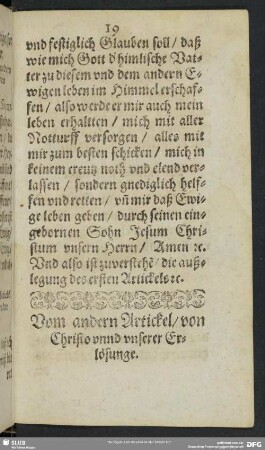 19
vnd festiglich Glauben soll / daß
wie mich Gott d'himlische Vat-
ter zu diesem vnd dem andern E-
wigen leben im Himmel erschaf-
fen / also werde er mir auch mein
leben erhaltten / mich mit aller
Notturff versorgen / alles mit
mir zum besten schicken / mich in
keinem creutz noth vnd elend ver-
lassen / sondern gnediglich helf-
fen vnd retten / vn̄ mir daß Ewi-
ge leben geben / durch seinen ein-
gebornen Sohn Jesum Chri-
stum vnsern Herrn / Amen ꝛc.
Vnd also ist zuverstehē die auß-
legung des ersten Artickels ꝛc.
Vom andern Artickel / von
Christo vnnd vnserer Er-
lösunge.
SLUB
DFG